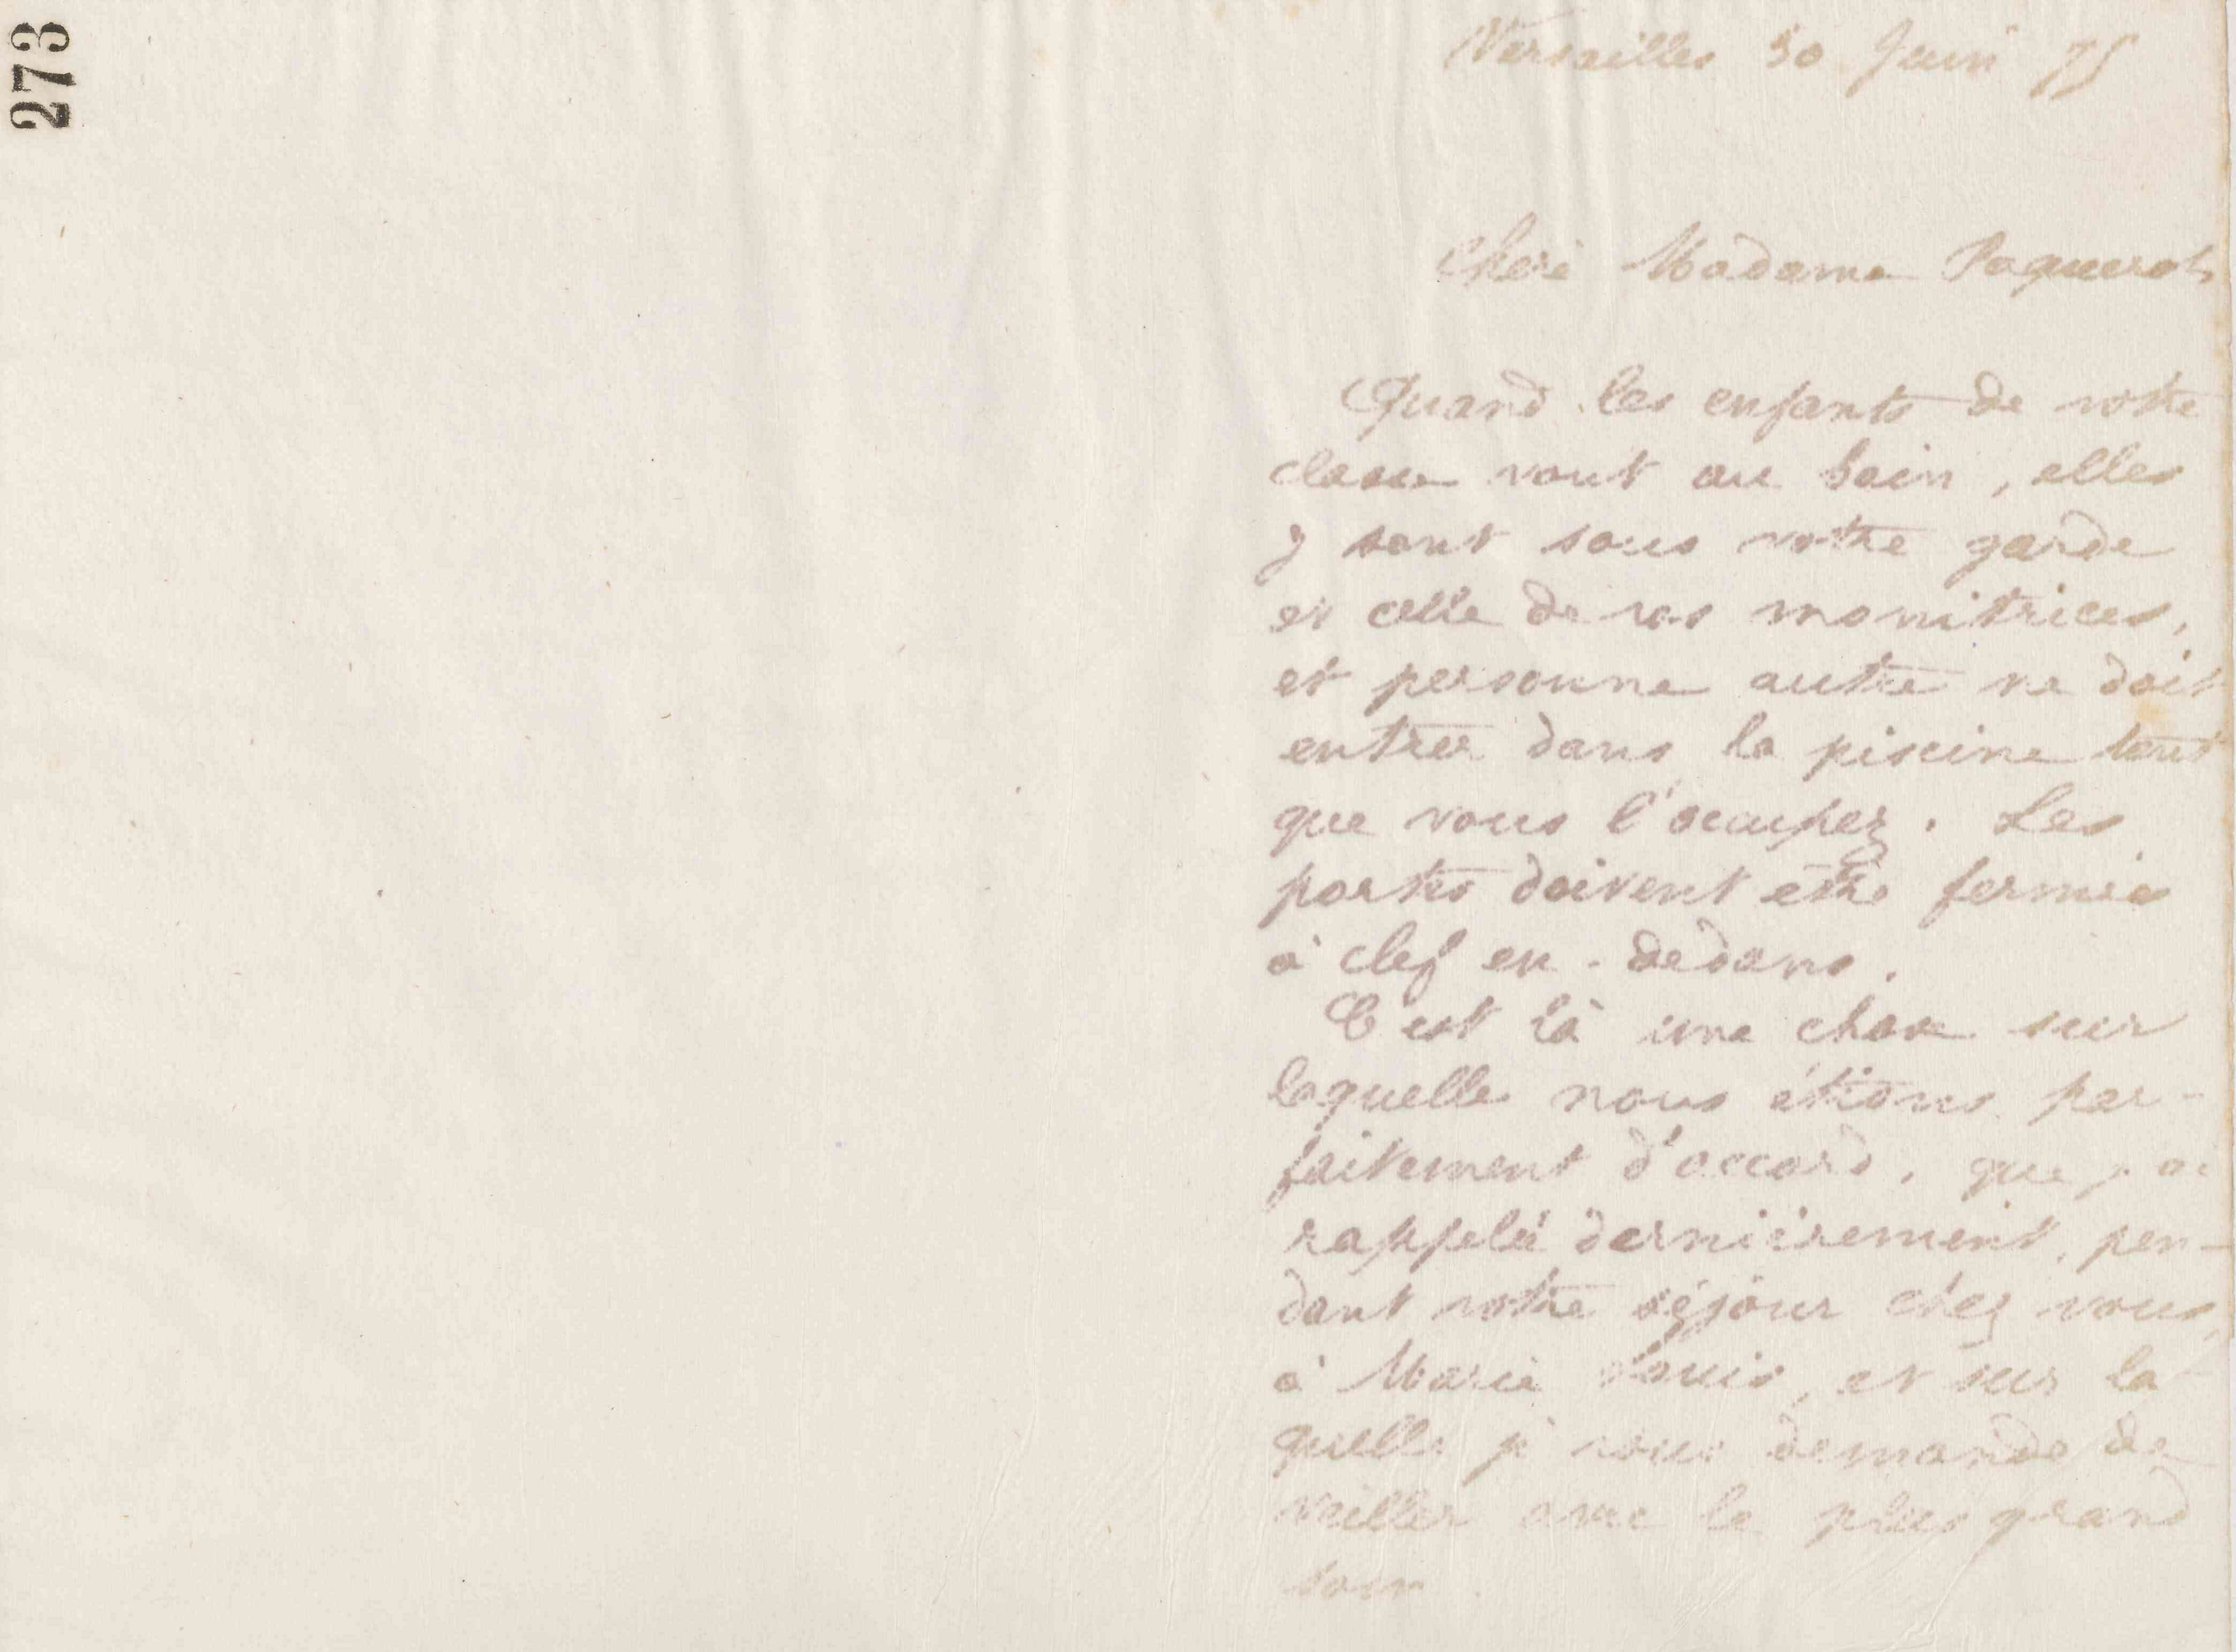 273
Versailles 30 Juin 75
Chère Madame Paquerot
Quand les enfants de votre
classe vont au bain, elles
y sont sous votre garde
et celle de vos monitrices,
et personne autre ne doit
entrer dans la piscine tant
que vous l'occupez. Les
portes doivent être fermées
à clef en-dedans.
C'est là une chose sur
laquelle nous étions par-
faitement d'accord, que j'ai
rappelée dernièrement, pen-
dant notre séjour chez vous,
à Marie Louis, et sur la
quelle je vous demande de
veiller avec le plus grand
soin.